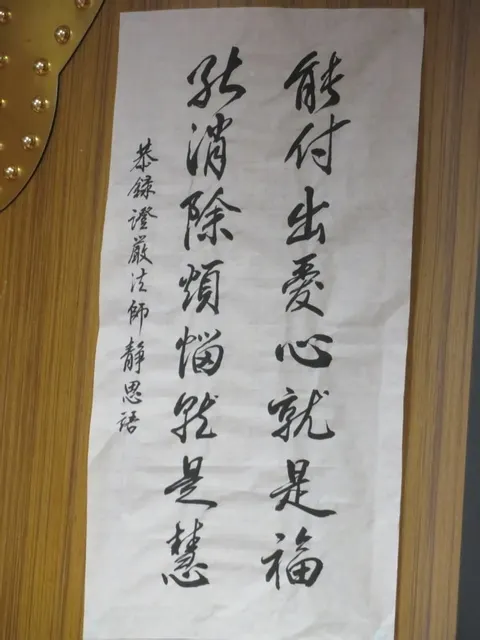 能付出愛心就是福
能消除煩惱就是慧
恭錄證嚴法師靜思語